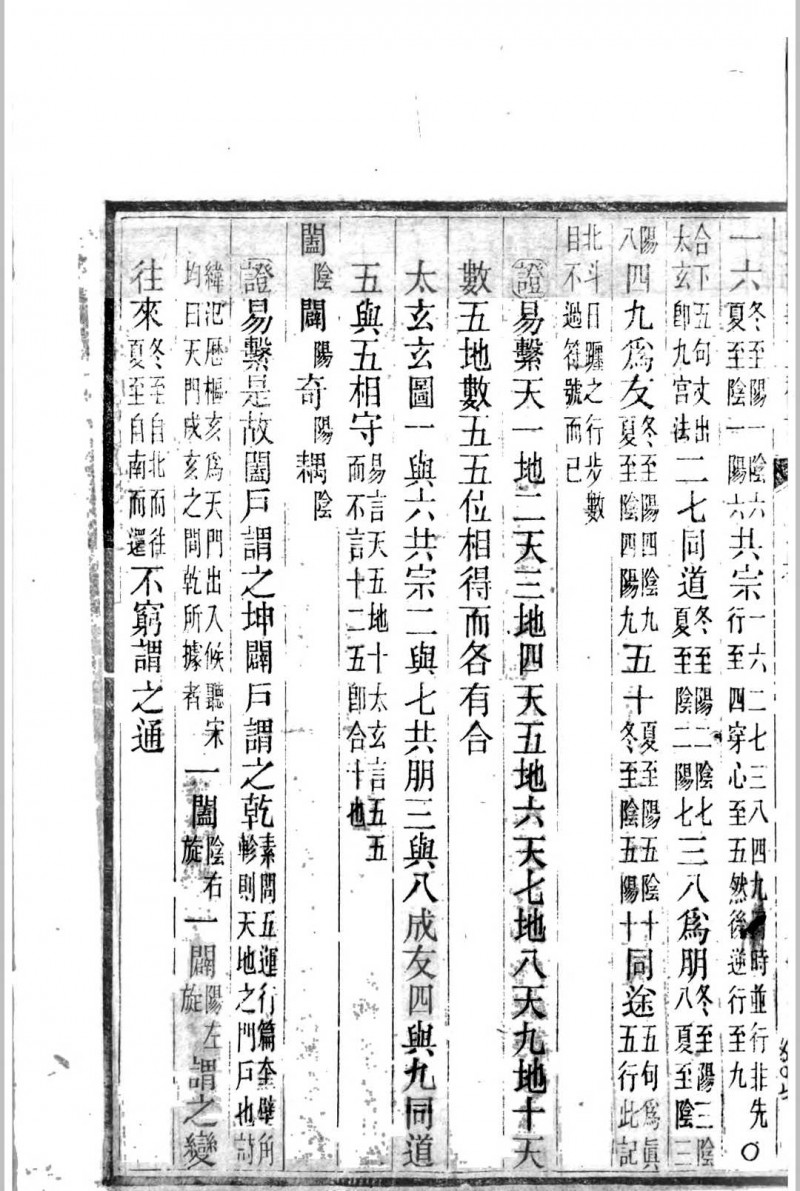 一六冬至陽一陰六夏至陰一陽六共宗一六二七三八四九同時並行非先行至四穿心至五然後逆行至九
合下五句文出太玄卽九宮法二七同道冬至陽二陰七夏至陰二陽七三八爲朋冬至陽三陰八夏至陰三
陽八四九爲友冬至陽四陰九夏至陰四陽九五十夏至陽五陰十冬至陰五陽十同途五句爲眞五行此記
北斗日躔之行步數目不過符號而已
證易繫天一地二天三地四天五地六天七地八天九地十天
數五地數五五位相得而各有合
太玄玄圖一與六共宗二與七共朋三與八成友四與九同道
五與五相守易言天五地十太玄言五五而不言十二五卽合十也
闔陰闢陽奇陽耦陰
證易繫是故闔戶謂之坤闢戶謂之乾素問五運行篇奎壁角軫則天地之門戶也詩
緯氾厤樞亥爲天門出入候聽宋均曰天門戌亥之間乾所據者一闔陰右旋一闢陽左旋謂之變
往來冬至自北而往夏至自南而還不窮謂之通